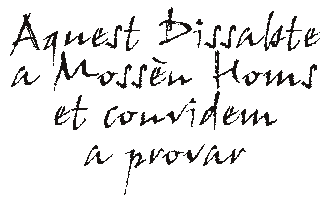 Aquest Dissabte
a Mossèn Homs
et convidem
a provar